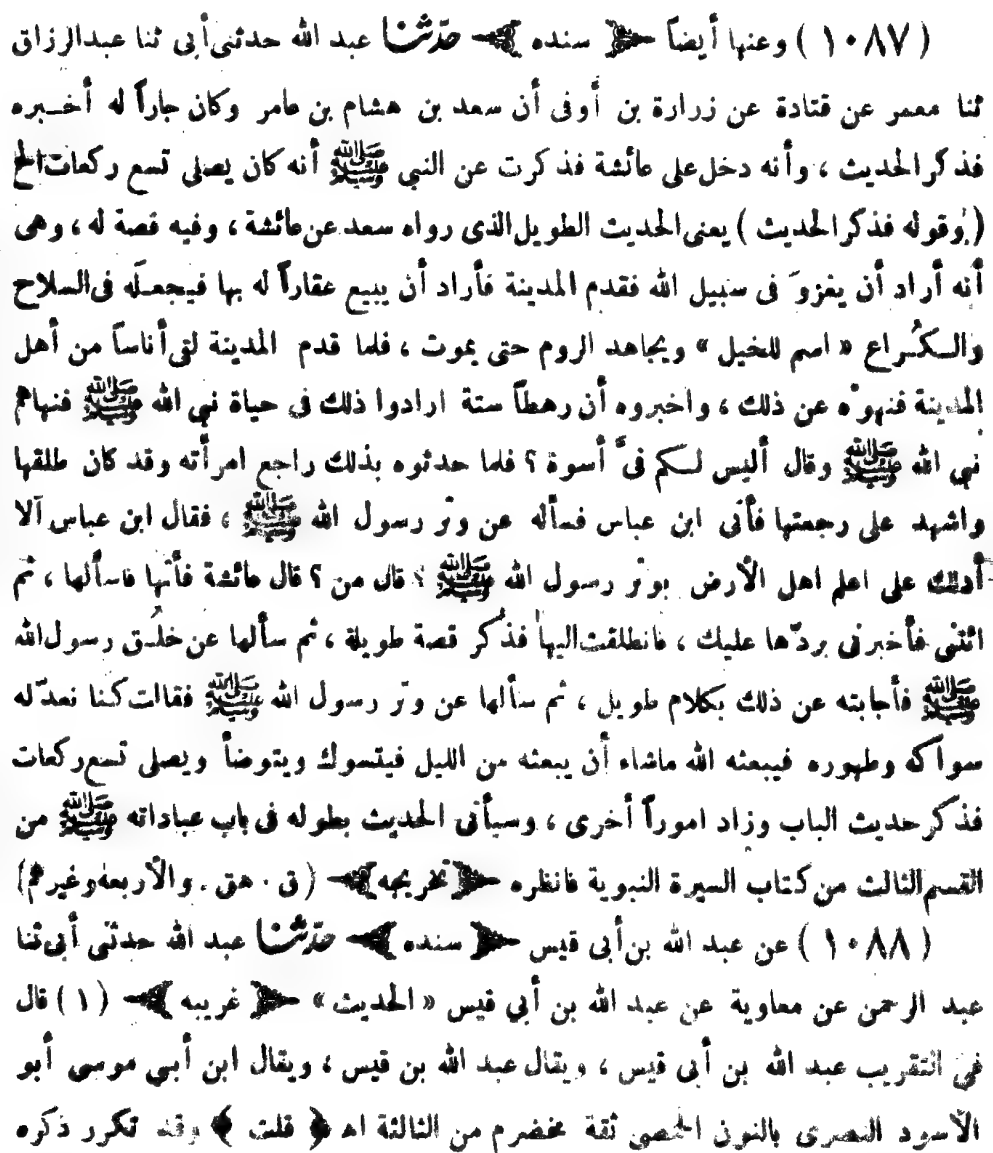 ( ١٠٨٧ ) وعنها أيضاً ﴿ سنده ﴾ حدّثنا عبد الله حدثنى أبى ثنا عبدالرزاق
ثنا معمر عن قتادة عن زرارة بن أوفى أن سعد بن هشام بن عامر وكان جاراً له أخـبره
فذكرالحديث ، وأنه دخل على عائشة فذكرت عن النبى ﷺ أنه كان يصلى تسع ركعات الخ
( وقوله فذكر الحديث ) يعنى الحديث الطويل الذى رواه سعد عن عائشة ، وفيه قصة له ، وهى
أنه أراد أن يغزوَ فى سبيل الله فقدم المدينة فأراد أن يبيع عقاراً له بها فيجعـلَه فى السلاح
والـكُراع « اسم للخيل » ويجاهد الروم حتى يموت ، فلما قدم المدينة لقى أناساً من أهل
المدينة فنهوْه عن ذلك ، واخبروه أن رهطاً ستة ارادوا ذلك فى حياة نبي الله ﷺ فنهاهم
نبي الله ﷺ وقال أليس لـكم فىَّ أسوة ؟ فلما حدثوه بذلك راجع امرأته وقد كان طلقها
واشهد على رجعتها فأتى ابن عباس فسأله عن وتْر رسول الله ﷺ ، فقال ابن عباس ألا
أدلك على اعلم اهل الأرض بوتْر رسول الله ﷺ ؟ قال من ؟ قال عائشة فأتها فاسألها ، ثم
ائتنى فأخبرنى بردّها عليك ، فانطلقت اليها فذكر قصة طويلة ، ثم سألها عن خلُـق رسول الله
ﷺ فأجابته عن ذلك بكلام طويل ، ثم سألها عن وتر رسول الله ﷺ فقالت كنا نعدّ له
سواكه وطهوره فيبعثه الله ماشاء أن يبعثه من الليل فيتسوك ويتوضأ ويصلى تسع ركعات
فذكر حديث الباب وزاد اموراً أخرى ، وسيأتى الحديث بطوله فى باب عباداته ﷺ من
القسم الثالث من كتاب السيرة النبوية فانظره ﴿ تخريجه ﴾ (ق . هق . والأربعة وغيرهم)
( ١٠٨٨ ) عن عبد الله بن أبى قيس ﴿ سنده ﴾ حدّثنا عبد الله حدثنى أبى ثنا
عبد الرحمن عن معاوية عن عبد الله بن أبي قيس « الحديث » ﴿ غريبه ﴾ ( ١ ) قال
في التقريب عبد الله بن أبى قيس ، ويقال عبد الله بن قيس ، ويقال ابن أبـي موسى أبو
الأسود النصرى بالنون الحمصى ثقة مخضرم من الثالثة اهـ ﴿ قلت ﴾ وقد تكرر ذكره